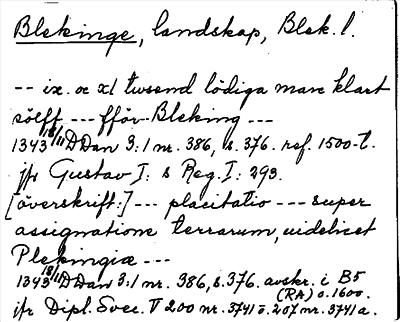 Blekinge, landskap, Blek. l.
-- ix. oc xl twsend lödiga marc klart
sölff --- fför Bleking ---
1343 18/11 DDan 3:1 nr. 386, s. 376. ref. 1500-t.
jfr Gustav I:s Reg. I: 293.
[överskrift:] --- placitatio --- super
assignatione terrarum, uidelicet
Plekingiæ ---
1343 18/11 DDan 3:1 nr. 386, s. 376. avskr. i B5
(RA) o. 1600.
jfr Dipl. Svec. V 200 nr. 3741 o. 207 nr. 3741 a.